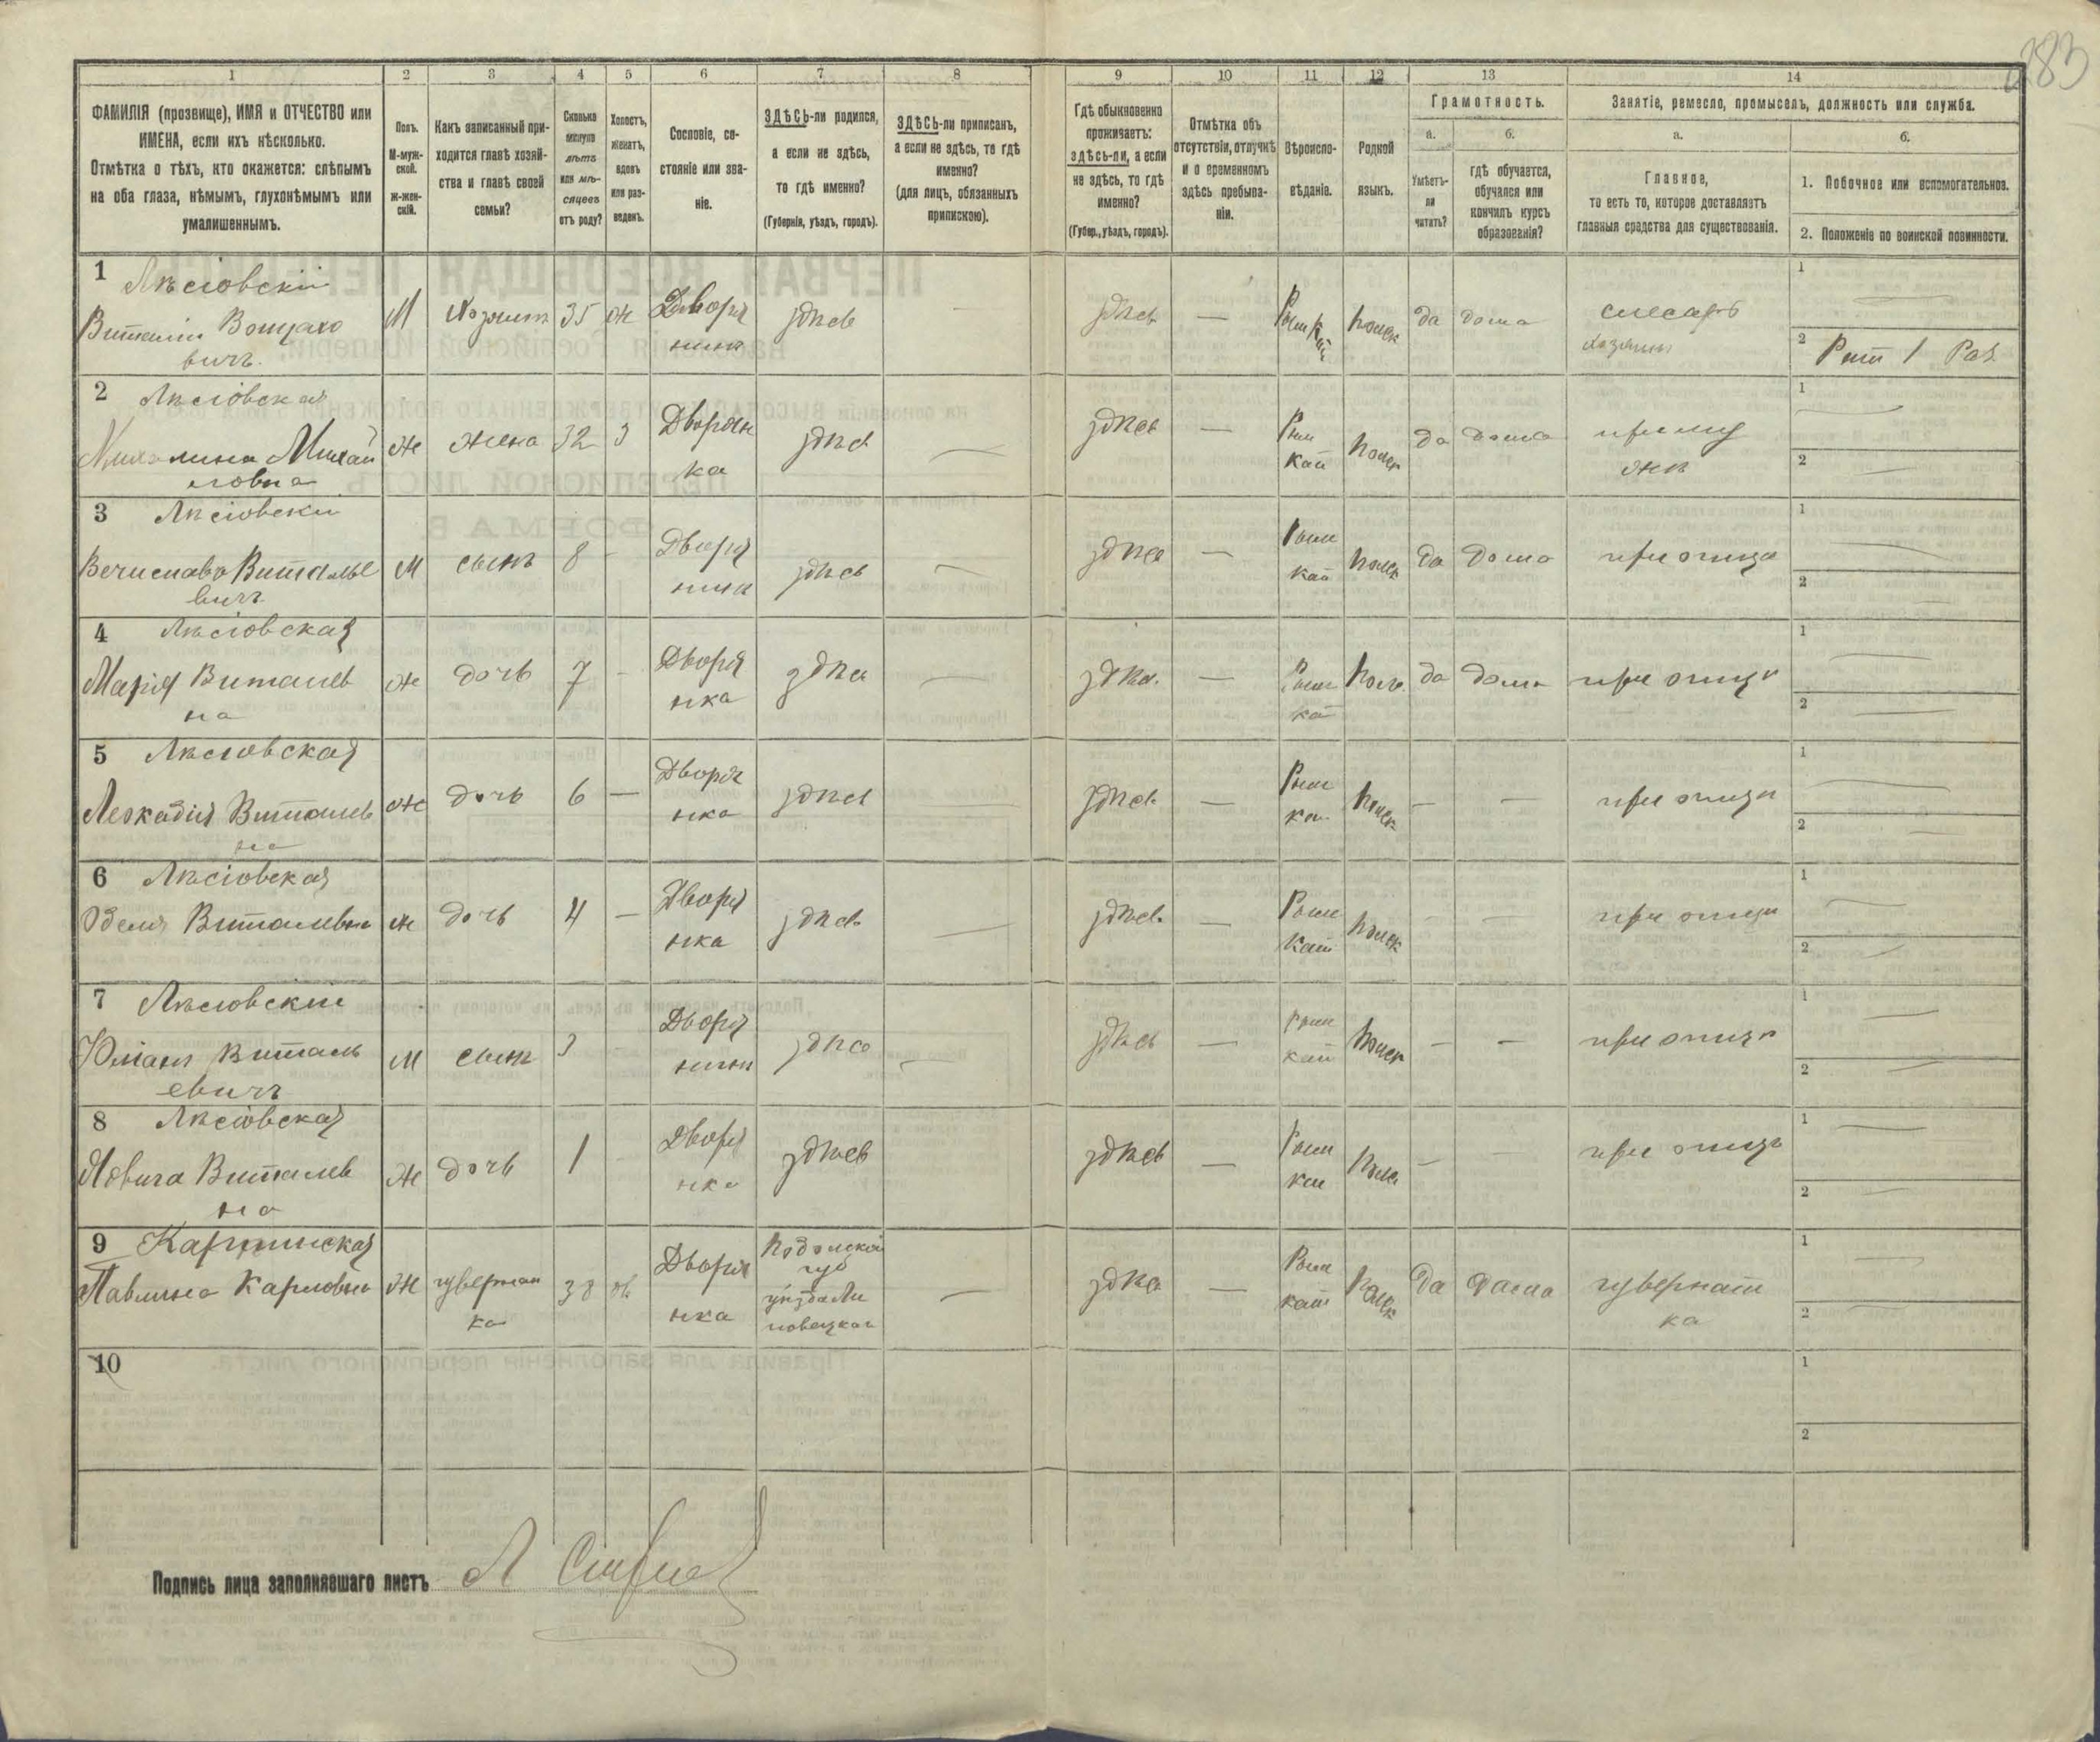 283
1 2 3 4 5 6 7 8 9 10 11 12 13 14
ФАМИЛІЯ (прозвище), ИМЯ и ОТЧЕСТВО или
ИМЕНА, если ихъ нѣсколько.
Отмѣтка о тѣхъ, кто окажется: слѣпымъ
на оба глаза, нѣмымъ, глухонѣмымъ или
умалишеннымъ.
Полъ.
М-муж-
ской.
ж-жен-
скій.
Какъ записанный при-
ходится главѣ хозяй-
ства и главѣ своей
семьи?
Сколько
минуло
лѣтъ
или мѣ-
сяцевъ
отъ роду?
Холостъ,
женатъ,
вдовъ
или раз-
веденъ.
Сословіе, со-
стояніе или зва-
ніе.
ЗДѢСЬ-ли родился,
а если не здѣсь,
то гдѣ именно?
(Губернія, уѣздъ, городъ).
ЗДѢСЬ-ли приписанъ,
а если не здѣсь, то гдѣ
именно?
(для лицъ, обязанныхъ
припискою).
Гдѣ обыкновенно
проживаетъ:
здѣсь-ли, а если
не здѣсь, то гдѣ
именно?
(Губер., уѣздъ, городъ).
Отмѣтка объ
отсутствіи, отлучкѣ
и о временномъ
здѣсь пребыва-
ніи.
Вѣроиспо-
вѣданіе.
Родной
языкъ.
Грамотность.
а.
Умѣетъ-
ли
читать?
б.
гдѣ обучается,
обучался или
кончилъ курсъ
образованія?
Занятіе, ремесло, промыселъ, должность или служба.
а.
Главное,
то есть то, которое доставляетъ
главныя средства для существованія.
б.
1. Побочное или вспомогательное.
2. Положеніе по воинской повинности.
1 Лѣсіовскій
Виталій
вичъ
М 35 ж Дворя
нинъ
здѣсь — здѣсь — да дома слесарь
1
2
2 Лѣсіовская
Михалина Михай
ловна
ж жена 32 з Дворян
ка
здѣсь — здѣсь — Рим
кат
польск да дома при му
жѣ
1
2
3 Лѣсіовскій
Виталье
вичъ
М сынъ 8 - Дворя
нинъ
здѣсь — здѣсь — Рим
кат
польск да дома при отцѣ
1
2
4 Лѣсіовская
Марія Виталев
на
ж дочь 7 - Дворя
нка
здѣсь — здѣсь — да дома при отцѣ
1
2
5 Лѣсіовская
Леокадія Виталев
на
ж дочь 6 — Дворя
нка
здѣсь здѣсь — Рим
ка
польск — — при отцѣ
1
2
6 Лѣсіовская
Виталевна
ж дочь 4 — Дворя
нка
здѣсь — здѣсь — Рим
кат
польск - - при отцѣ
1
2
7 Лѣсіовскій
Юліанъ Виталь
евичъ
М сынъ 3 - Дворя
нинъ
здѣсь — здѣсь — Рим
кат
польск — — при отцѣ
1
2
8 Лѣсіовская
Ядвига Виталев
на
ж дочь 1 - Дворя
нка
здѣсь здѣсь — — — при отцѣ
1
2
9
Павлина Карловна
ж гувернан
ка
38 Дворя
нка
Подольской
губ
уѣзда Ли
товецкаго
— здѣсь — Рим
кат
польск да дома гувернант
ка
1
2
10
1
2
Подпись лица заполнявшаго листъ